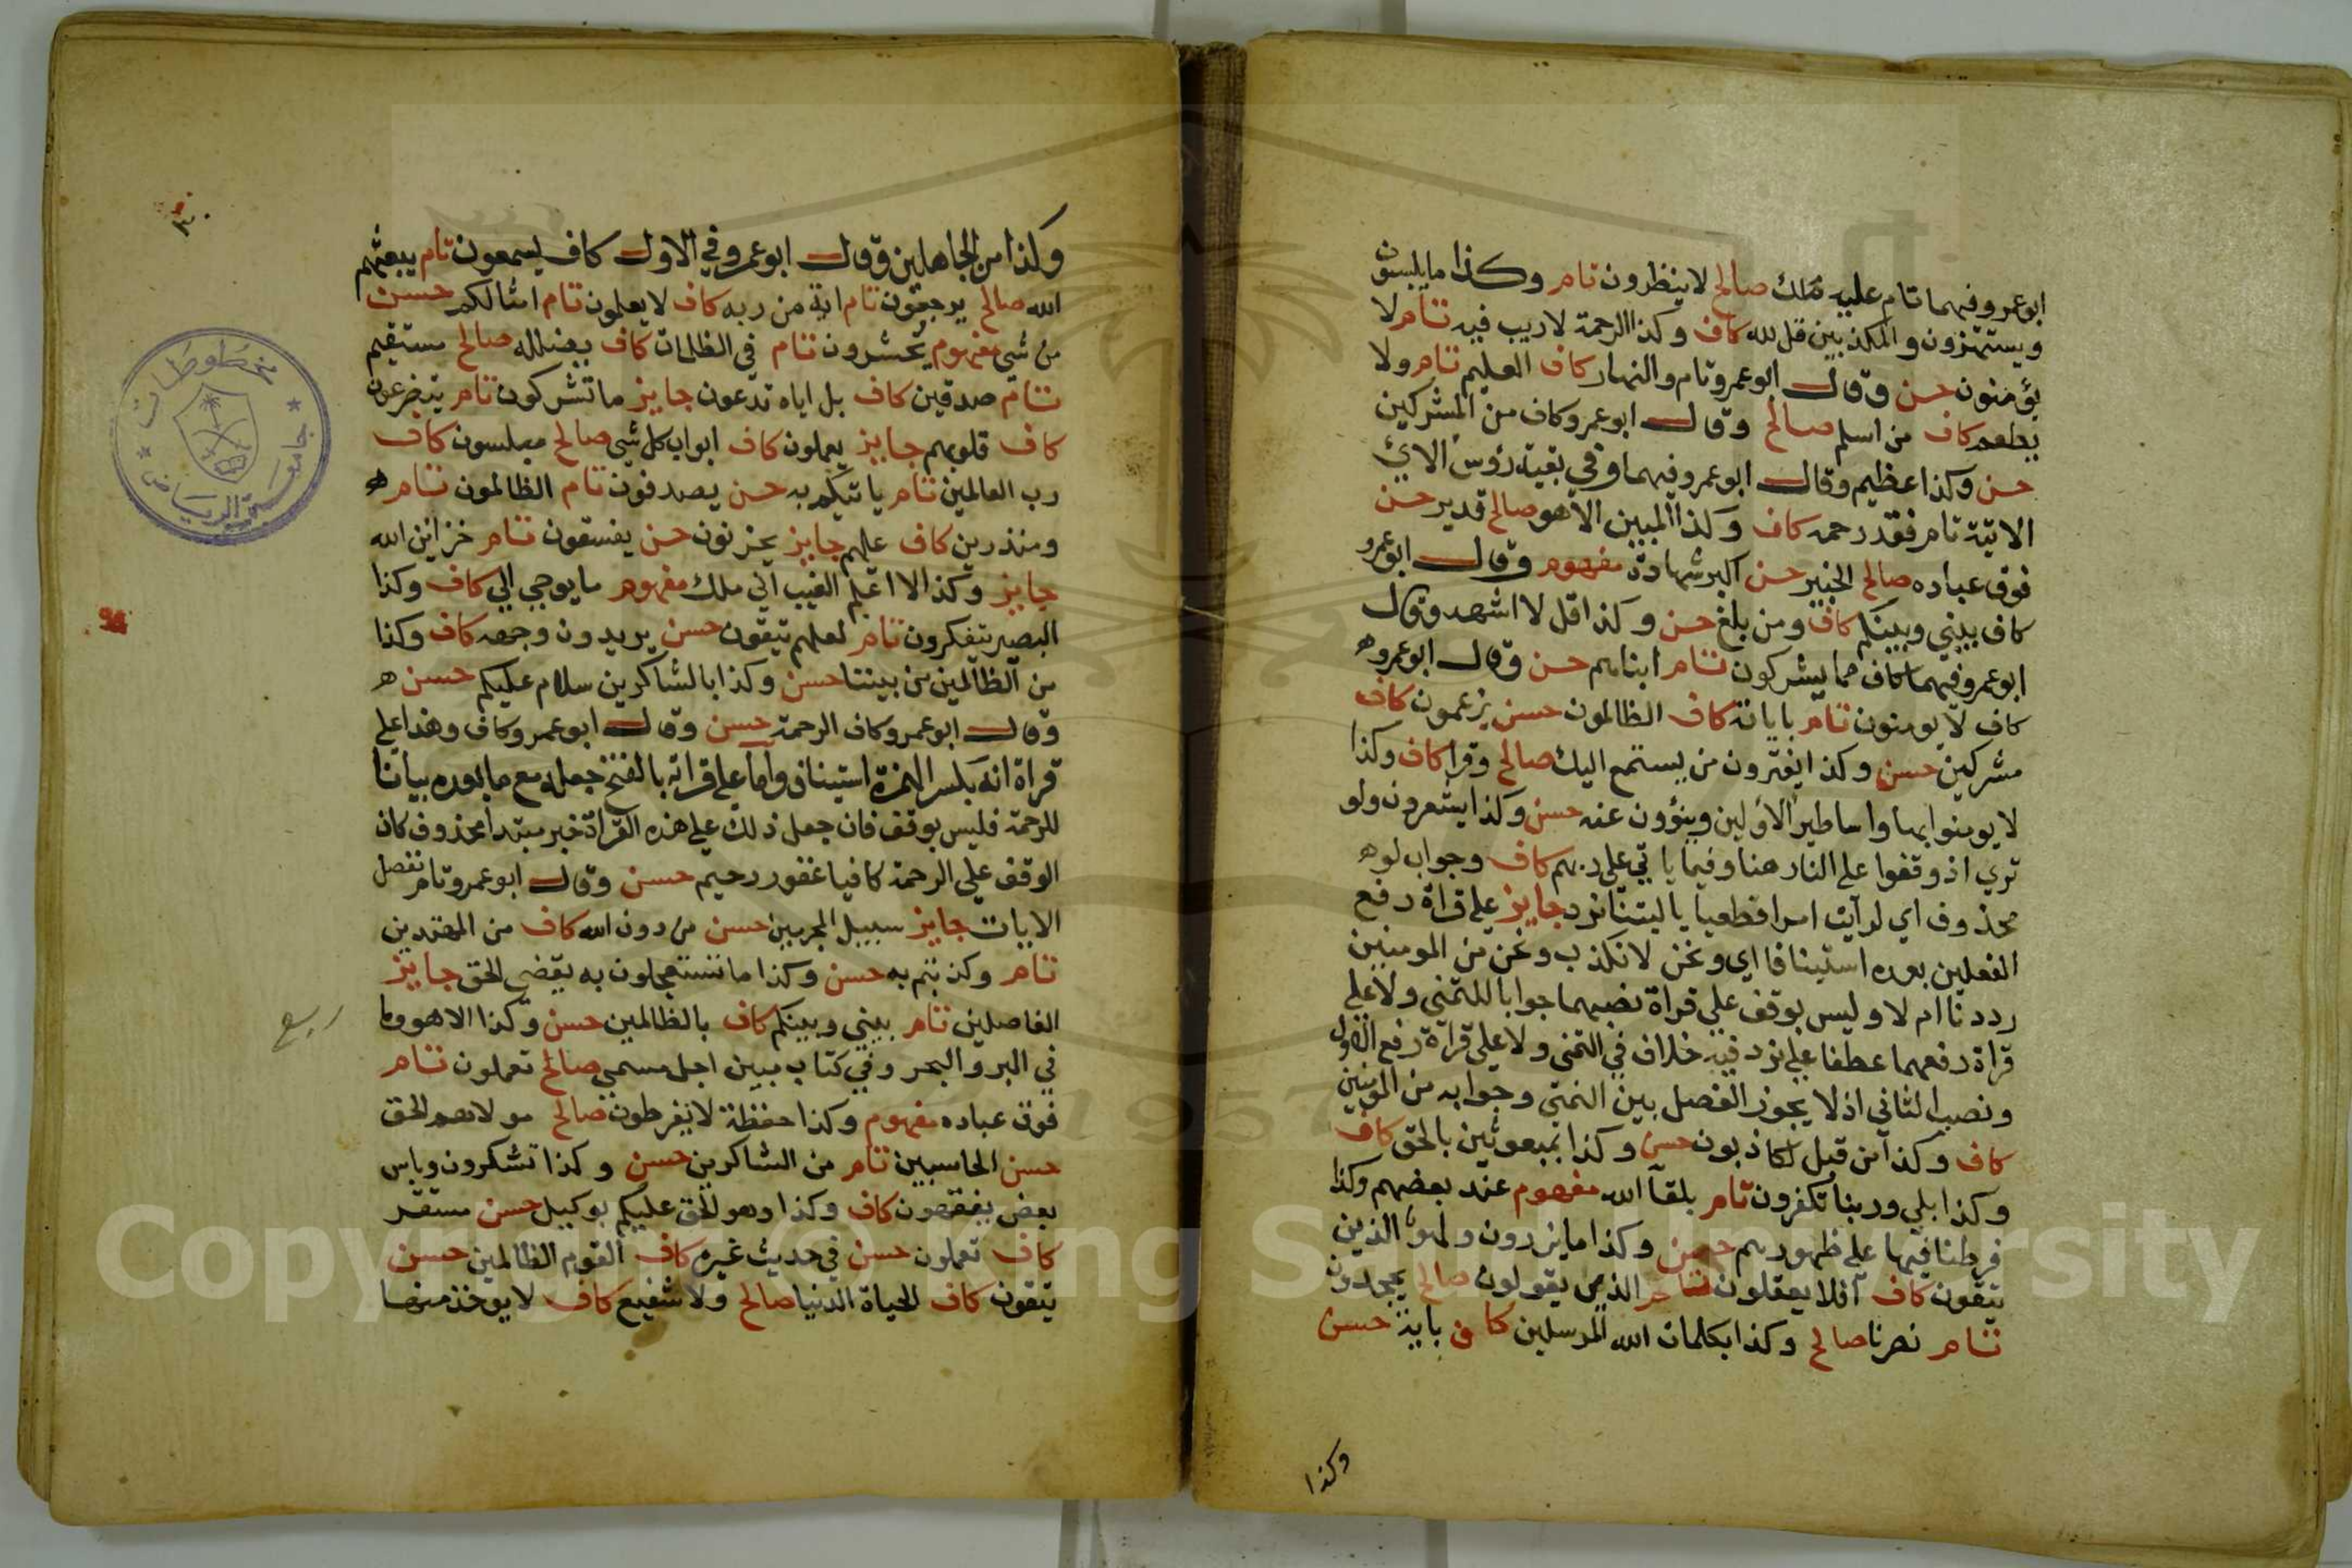 ابو عمرو فيهما تام عليه ملك صالح لا ينظرون تام وكذا ما يلبسون
ويستهزون والمكذبين قل لله كاف وكذا الرحمة لا ريب فيه تام لا
يؤمنون حسن وقال ابو عمرو تام والنهار كاف العليم تام ولا
يطعم كاف من اسلم صالح وقال ابو عمرو كاف من المشركين
حسن وكذا عظيم وقال ابو عمرو فيهما وفي بقية رؤس الاي
الاتية تام فقد رحمه كاف وكذا المبين الا هو صالح قدير حسن
فوق عباده صالح الخبير حسن اكبر شهادة مفهوم وقال ابو عمرو
كاف بيني وبينكم كاف ومن بلغ حسن وكذا قل لا اشهد وقال
ابو عمرو فيهما كاف مما يشركون تام ابناهم حسن وقال ابو عمرو ه
كاف لا يومنون تام باياته كاف الظالمون حسن يزعمون كاف
مشركين حسن وكذا يفترون من يستمع اليك صالح وقرا كاف وكذا
لا يومنوا بها واساطير الاولين وينؤون عنه حسن وكذا يشعرون ولو
تري اذ وقفوا على النار هنا وفيما ياتي على ربهم كاف وجواب لو ه
محذوف اي لرآيت امرا فظعيا يا ليتنا نرد جايز على قراة رفع
الفعلين بعده استينافا اي ونحن لا نكذب ونحن من المومنين
رددنا ام لا وليس بوقف علي قراة نصبهما جوابا للتمنى ولا علي
قراة رفعهما عطفا علي نرد فيه خلاف في التمنى ولا على قراة رفع الاول
ونصب الثاني اذ لا يجوز الفصل بين التمني وجوابه من المومنين
كاف وكذا من قبل لكاذبون حسن وكذا بمبعوثين بالحق كاف
وكذا بلي وربنا تكفرون تام بلقآ الله مفهوم عند بعضهم وكذا
فرطنا فيها على ظهورهم حسن وكذا ما يزرون ولهو للذين
يتقون كاف آفلا يعقلون تام الذي يقولون صالح يجحدون
تام نصرنا صالح وكذا بكلمات الله المرسلين كاف باية حسن
وكذا
٣٠
وكذا من الجاهلين وقال ابو عمرو في الاول كاف يسمعون تام يبعثهم
الله صالح يرجعون تام اية من ربه كاف لا يعلمون تام امثالكم حسن
من شي مفهوم يحشرون تام في الظلمات كاف يضلله صالح مستقيم
تام صدقين كاف بل اياه تدعون جايز ما تشركون تام يتضرعون
كاف قلوبهم جايز يعملون كاف ابواب كل شي صالح مبلسون كاف
رب العالمين تام ياتيكم به حسن يصدفون تام الظالمون تام ه
ومنذرين كاف عليهم جايز يحزنون حسن يفسقون تام خزاين الله
جايز وكذا لا اعلم الغيب اني ملك مفهوم ما يوحي الي كاف وكذا
البصير تتفكرون تام لعلهم يتقون حسن يريدون وجهه كاف وكذا
من الظالمين من بيننا حسن وكذا بالشاكرين سلام عليكم حسن ه
وقال ابو عمرو كاف الرحمة حسن وقال ابو عمرو كاف وهذا علي
قراة انه بكسر الهمزة استينافا واما علي قراته بالفتح بجعله مع ما بعده بيانا
للرحمة فليس بوقف فان جعل ذلك علي هذه القراة خبر مبتدا محذوف كان
الوقف علي الرحمة كافيا غفور رحيم حسن وقال ابو عمرو تام نفصل
الايات جايز سبيل المجرمين حسن من دون الله كاف من المهتدين
تام وكذبتم به حسن وكذا ما تستعجلون به يقضي الحق جايز
الفاصلين تام بيني وبينكم كاف بالظالمين حسن وكذا الا هو وما
ربع
في البر والبحر وفي كتاب مبين اجل مسمي صالح تعملون تام
فوق عباده مفهوم وكذا حفظة لا يفرطون صالح مولاهم الحق
حسن الحاسبين تام من الشاكرين حسن وكذا تشكرون وباس
بعض يفقهون كاف وكذا وهو الحق عليكم بوكيل حسن مستقر
كاف تعملون حسن في حديث غيره كاف القوم الظالمين حسن
يتقون كاف الحياة الدنيا صالح ولا شفيع كاف لا يوخذ منها
جامعة الرياض
مخطوطات
Copyright © King Saud University
1957